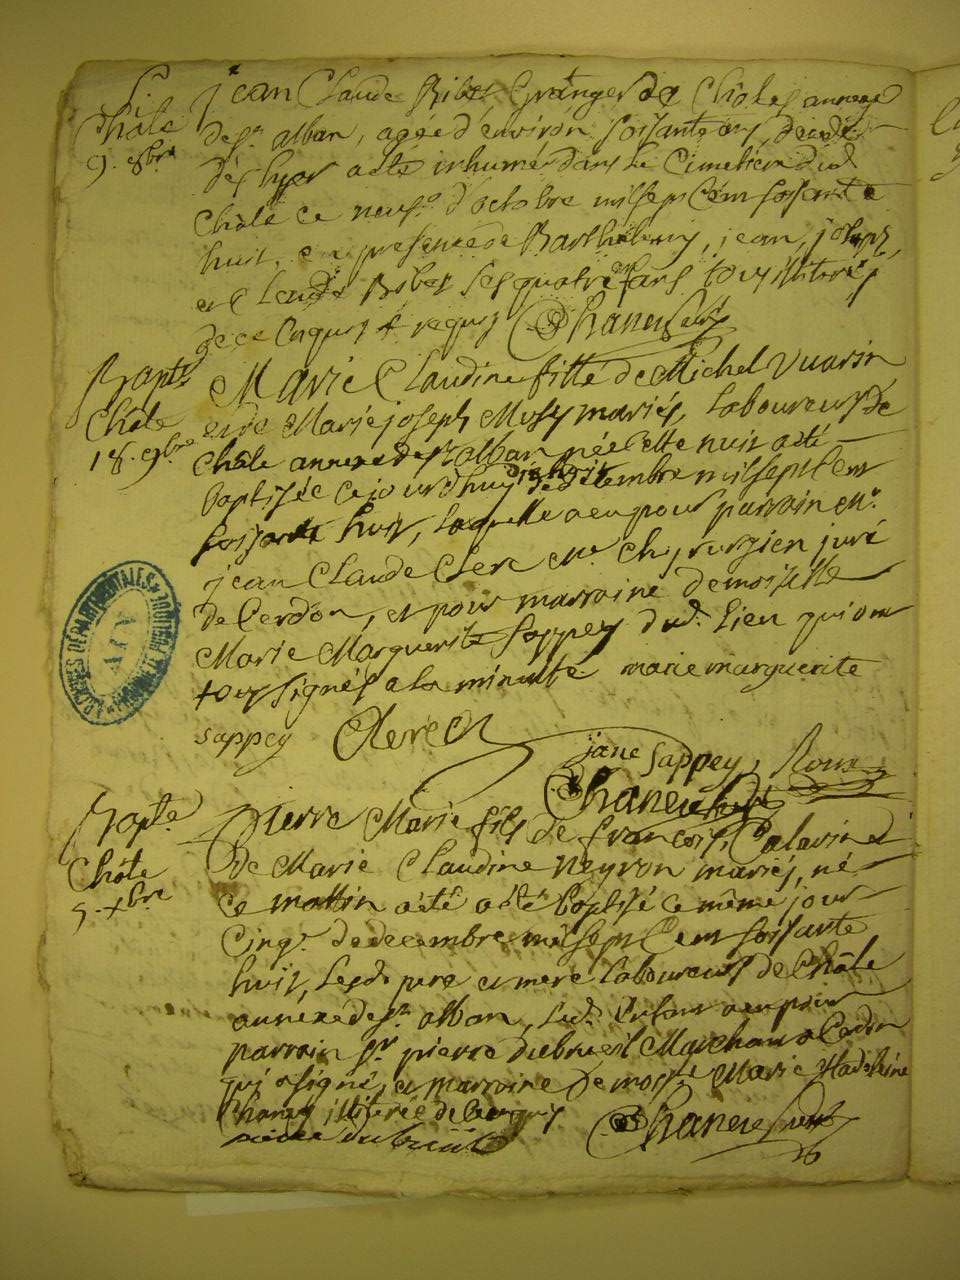 Châle
9. 8bre
jean Claude Ribet Granger de Châles annexe
de st. alban, agée d'environ soisante ans, decedé
dès hyer a eté inhumé dans le Cimetiere dud
Châle ce neuf. d'octobre mil sept Cent soisante
huit, en presence de Barthelemy, jean, joseph,
et Claude Ribet ses quatre enfans tous illiterés
de ce enquis & requis Chanu
Bapte
Châle
18. 9bre
Marie Claudine fille de Michel Vuarin
et de Marie joseph Musy mariés, laboureurs de
Châle annexe de st alban née cette nuit a eté
baptisée ce jourd'huy dixhuit novembre mil sept Cent
soisante huit, laquelle a eu pour parrain mr.
jean Claude Clerc me. Chyrurgien juré
de Cerdon, et pour marraine demoiselle
Marie Marguerite Sappey dud. Lieu qui ont
tous signés a la minute marie marguerite
sappey Clerc
jane Sappey, Roux
Chanu
Bapte
Châle
5. xbre
Pierre Marie fils de francois Calarin et
de Marie Claudine Neyron mariés, né
ce mattin a eté baptisé ce même jour
Cinq. de decembre mil sept Cent soisante
huit, lesd. pere et mere laboureurs de Châle
annexe de st. alban, led. Enfant a eu pour
parrain sr. pierre dubreuil Marchant a Cerdon
qui a signé, et marraine Demoiselle Marie Madeleine
Chaney illiterée de ce enquis
pierre dubreuil Chanu
ARCHIVES DÉPARTEMENTALES
AIN